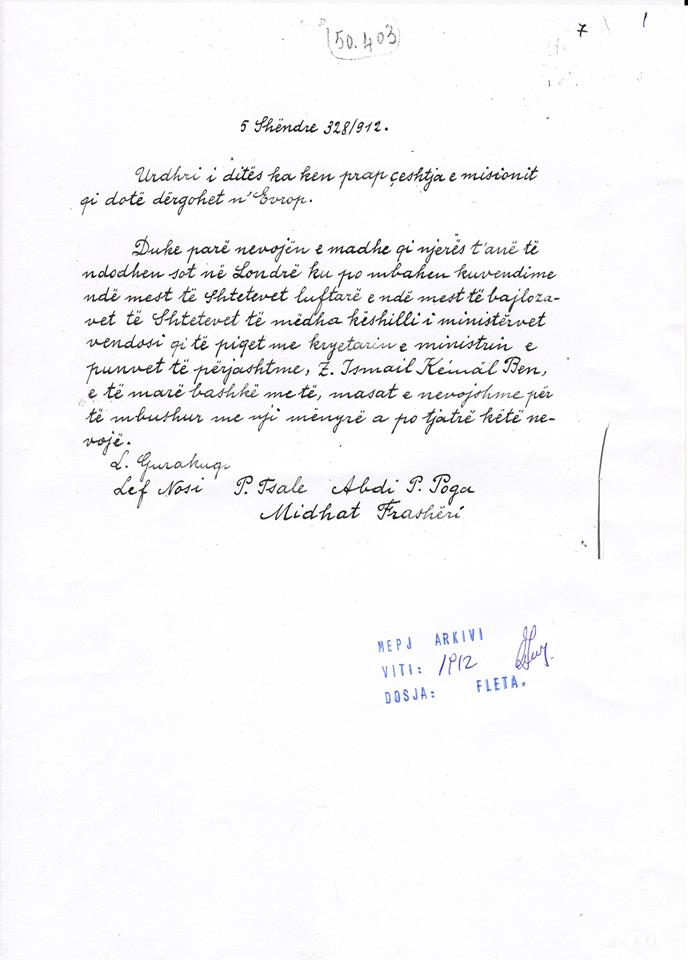 50.403
7
5 Shëndre 328/912.
Urdhri i ditës ka ken prap çeshtja e misionit
qi dotë dërgohet n'Evrop.
Duke parë nevojën e madhe qi njerës t'anë të
ndodhen sot në Londrë ku po mbahen kuvendime
ndë mest të Shtetevet luftarë e ndë mest të bajloza-
vet të Shtetevet të mëdha këshilli i ministërvet
vendosi qi të piqet me kryetarin e ministrin e
punvet të përjashtme, Z. Ismail Kémál Ben,
e të marë bashkë me të, masat e nevojshme për
të mbushur me nji mënyrë a po tjatrë këtë ne-
vojë.
L. Gurakuqi
Lef Nosi P. Tsale Abdi P. Poga
Midhat Frashëri
MEPJ ARKIVI
VITI: 1912
DOSJA: FLETA.